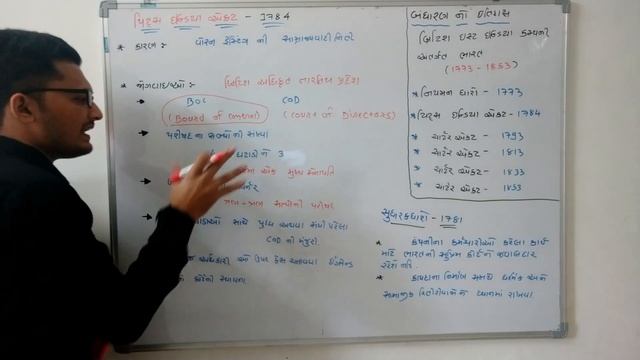 પિટ્સ ઇન્ડિયા એક્ટ - 1784
* કારણ :- વોરન હેસ્ટિંગ ની સામ્રાજ્યવાદી નિતી
* જોગવાઇઓ :- બ્રિટિશ અધિકૃત ભારતિય પ્રદેશ
BOC COD
(Board of control) (Court of Directors)
પરીષદના સભ્યોની સંખ્યા
ઘટાડીને 3
એક મુખ્ય સેનાપતિ
સાથે યુધ્ધ અથવા સંધી પહેલા
COD ની મંજુરી.
અધિકારી ઓ ઉપર કેસ ચલાવવા ઇંગ્લેન્ડ
કોર્ટની સ્થાપના
બંધારણ નો ઇતિહાસ
બ્રિટિશ ઇસ્ટ ઇન્ડિયા કંપની
અંતર્ગત ભારત
(1773 - 1853)
* નિયામક ધારો - 1773
* પિટ્સ ઇન્ડિયા એક્ટ - 1784
* ચાર્ટર એક્ટ - 1793
* ચાર્ટર એક્ટ - 1813
* ચાર્ટર એક્ટ - 1833
* ચાર્ટર એક્ટ - 1853
સુધારકધારો - 1781
* કંપનીના કર્મચારીઓ કરેલા કાર્ય
માટે ભારતની સુપ્રિમ કોર્ટને જવાબદાર
રહેશે નહિ.
* કાયદાના નિર્માણ સમયે ધાર્મિક અને
સામાજીક રિતીરીવાજોને ધ્યાનમાં રાખવા